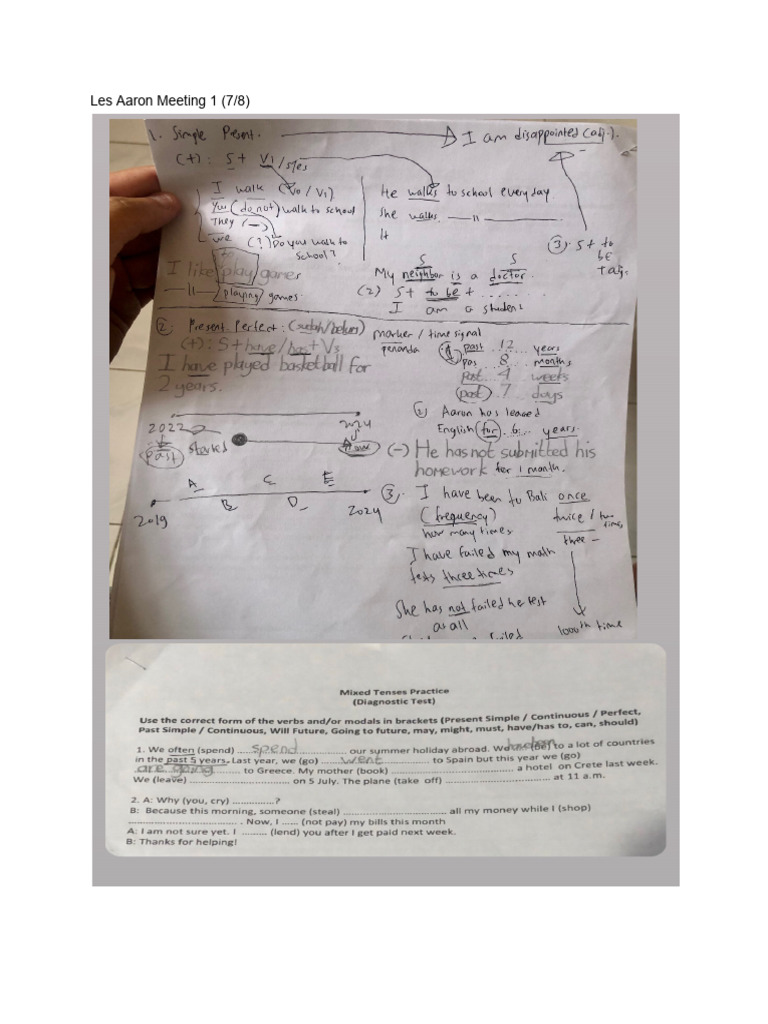 Les Aaron Meeting 1 (7/8)
1. Simple Present. I am disappointed (adj.).
(+): S + V1/s/es
I walk (V0/V1)
You (do not) walk to school
They (—)
we (?) Do you walk to school?
I like to play games
—11— playing games.
He walks to school every day.
She walks —11—
It
(3). S + to be + adj.
S S
My neighbor is a doctor.
(2) S + to be + .......
I am a student
2. Present Perfect: (sudah/belum)
(+): S + have/has + V3
I have played basketball for
2 years.
marker / time signal
penanda
1 past 12 years
pas 8 months
past 4 weeks
(past) 7 days
2022 2024
past started now
A C E
B D
2019 2024
2 Aaron has
English (for) 6 years.
(-) He has not submitted his
homework for 1 month.
3. I have been to Bali once
(frequency) twice / two times
how many times three —
I have failed my math
tests three times
She has not failed her test
at all
1000th time
failed
Mixed Tenses Practice
(Diagnostic Test)
Use the correct form of the verbs and/or modals in brackets (Present Simple / Continuous / Perfect,
Past Simple / Continuous, Will Future, Going to future, may, might, must, have/has to, can, should)
1. We often (spend) spend our summer holiday abroad. We have been (be) to a lot of countries
in the past 5 years. Last year, we (go) went to Spain but this year we (go)
are going to Greece. My mother (book) ........ a hotel on Crete last week.
We (leave) ........ on 5 July. The plane (take off) ........ at 11 a.m.
2. A: Why (you, cry) ...............?
B: Because this morning, someone (steal) ........ all my money while I (shop)
........ . Now, I ...... (not pay) my bills this month
A: I am not sure yet. I ......... (lend) you after I get paid next week.
B: Thanks for helping!